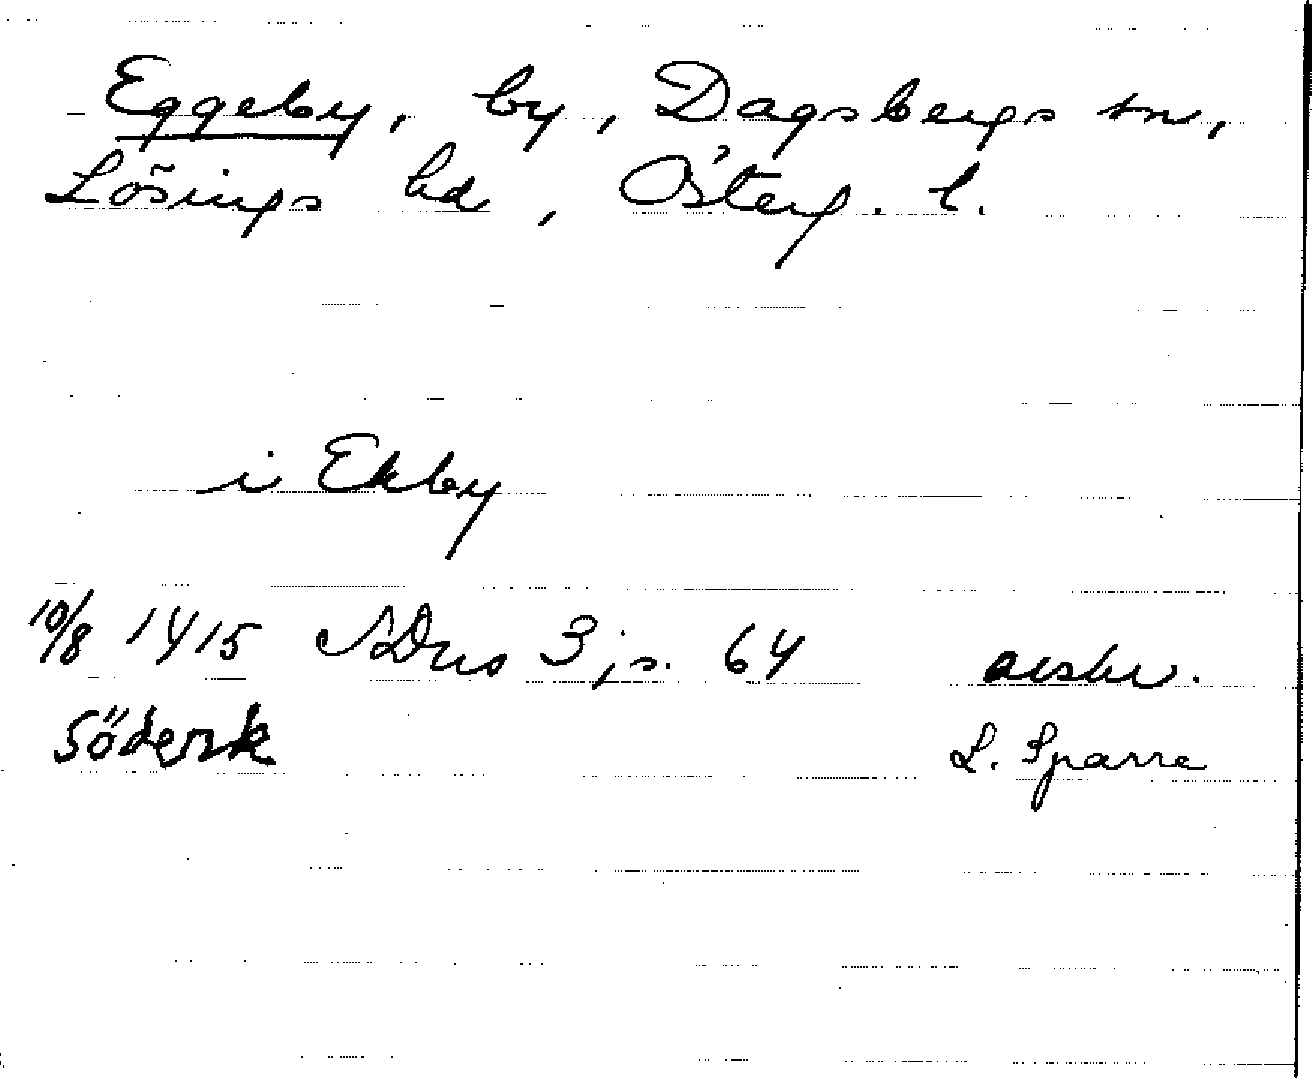 Eggeby, by, Dagsbergs sn,
Lösings hd, Österg. l.
i Ekby
10/8 1415 SDns 3, s. 64 avskr.
Söderk L. Sparre